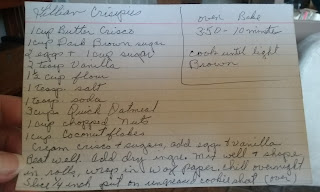 Crispies
1 cup Butter Crisco
1 cup Dark Brown sugar
2 eggs + 1 cup sugar
2 teasp Vanilla
1½ cup flour
1 teasp salt
1 teasp soda
3 cups Quick Oatmeal
1 cup chopped nuts
1 cup Coconut flakes
Cream crisco + sugars, add eggs + vanilla
Beat well. Add dry ingre. Mix well + shape
in rolls, wrap in wax paper, chill overnight
Slice ¼ inch put on ungreased cookie sheet (over)
oven Bake
350 - 10 minutes
cook until light
Brown